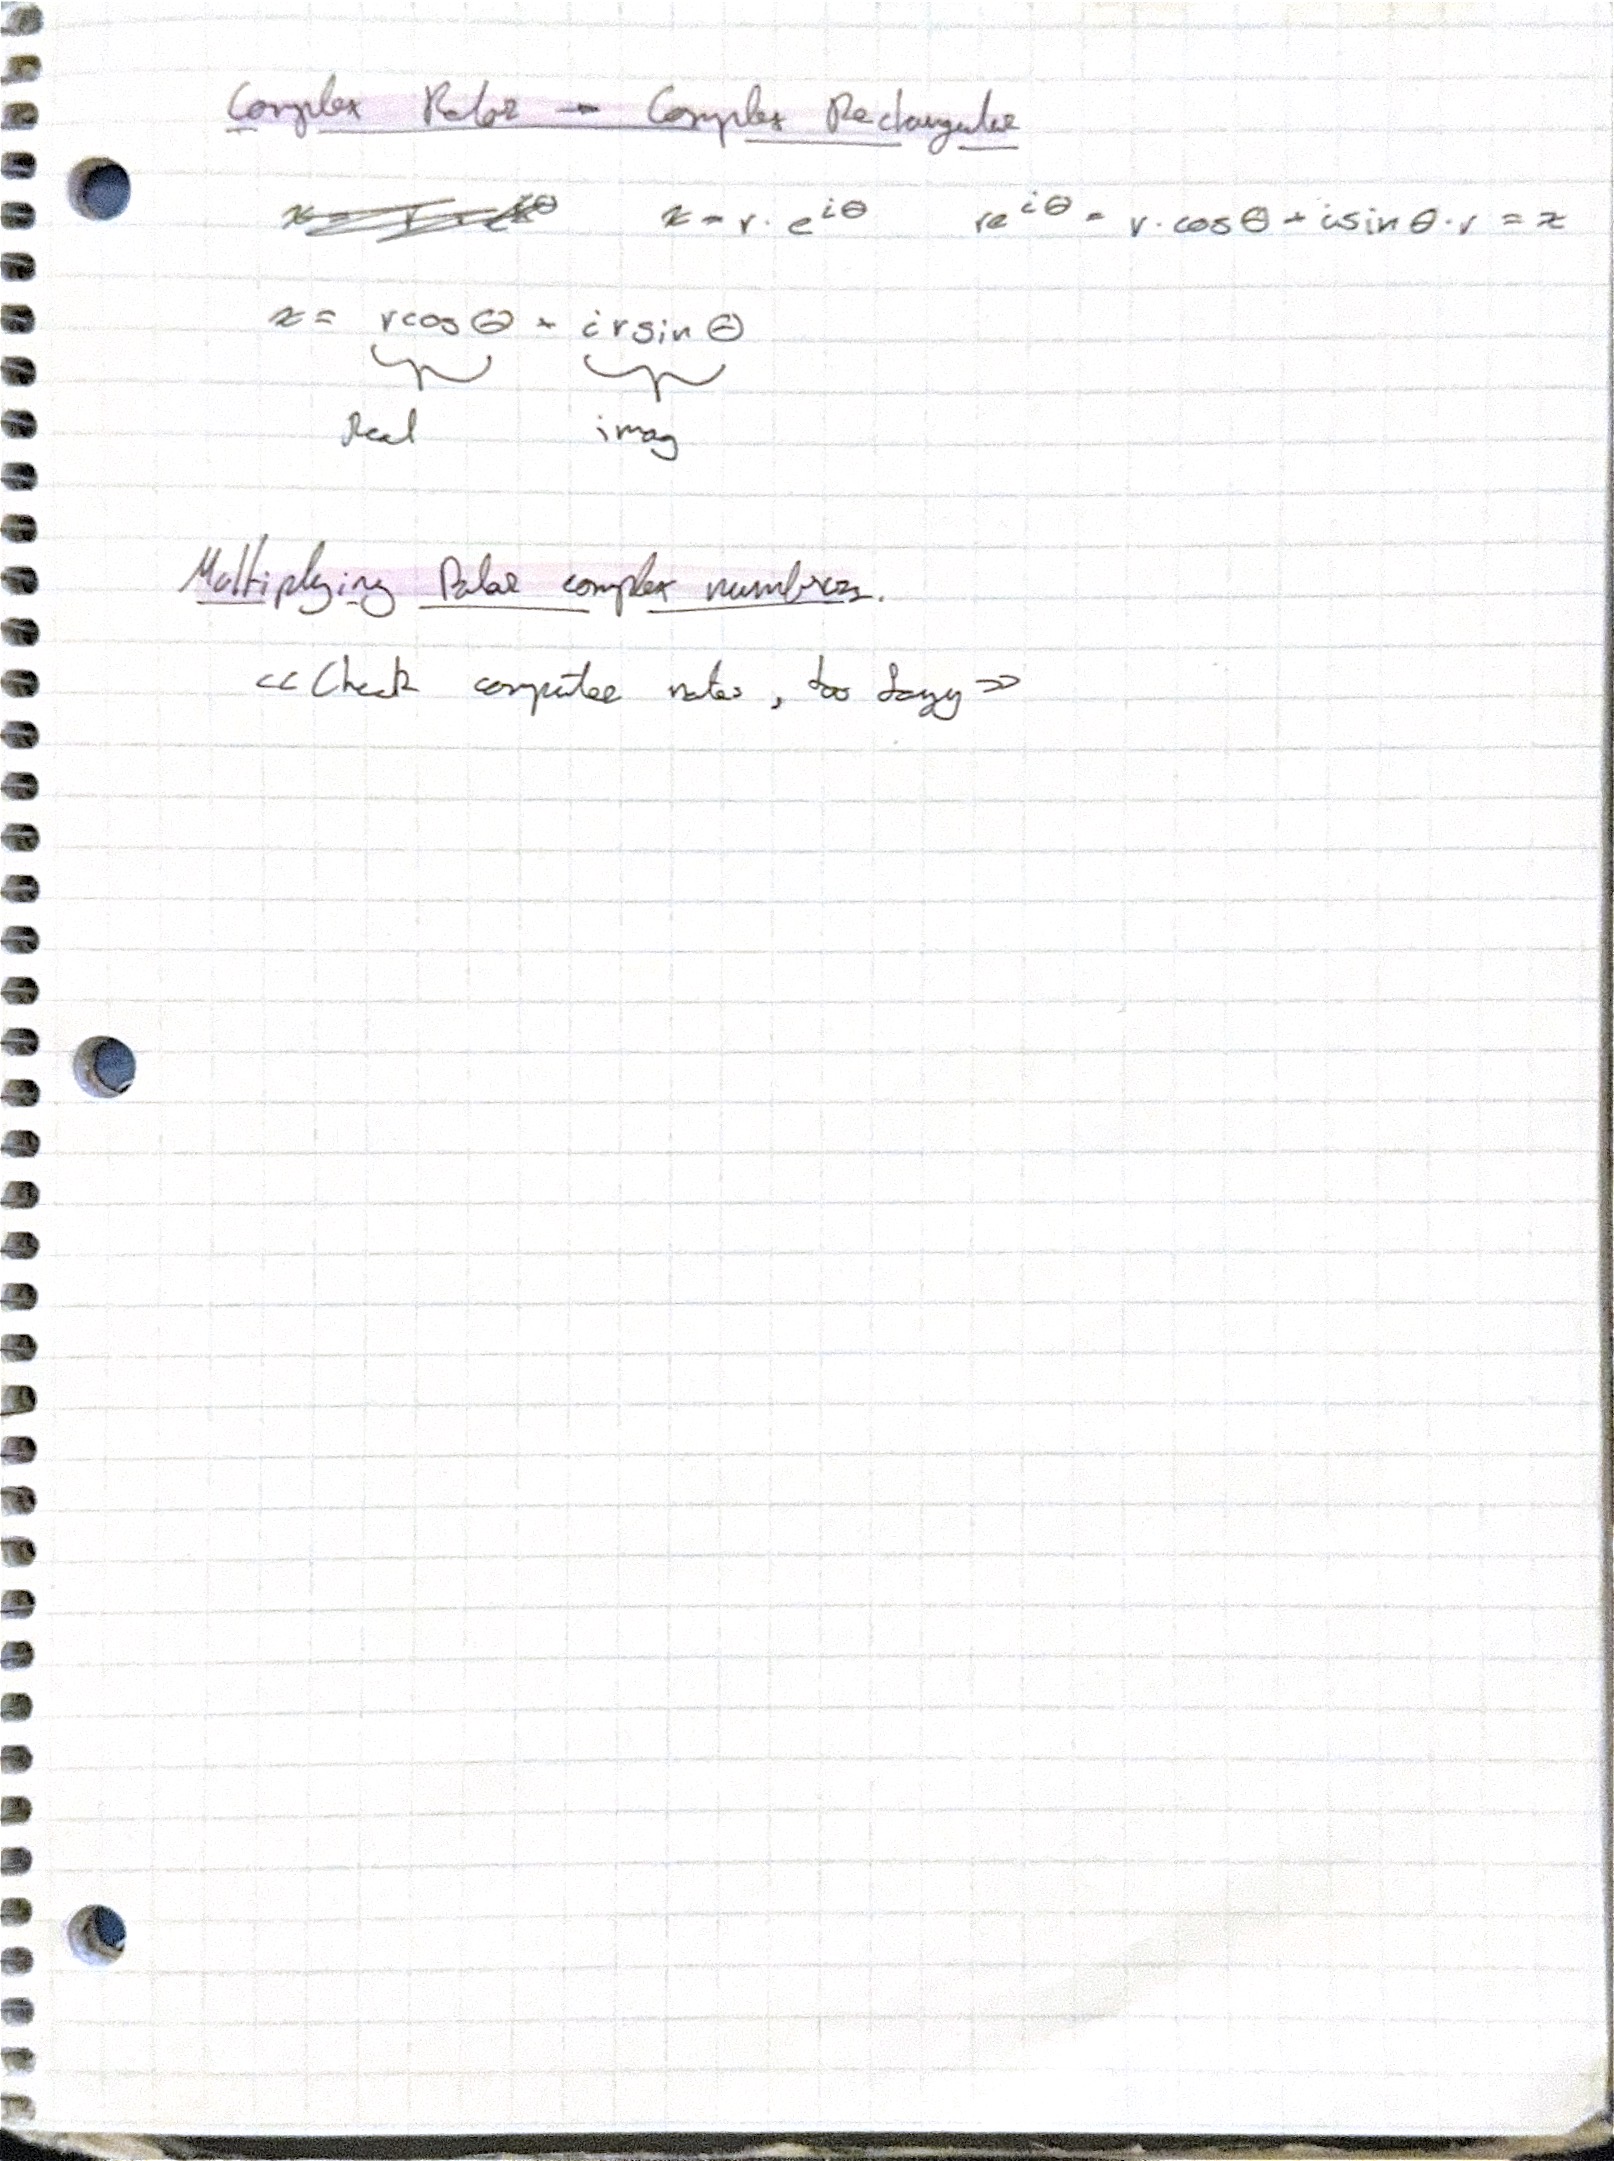 Complex Polar → Complex Rectangular
x = r · e^{iθ} re^{iθ} = r · cosθ + isinθ · r = x
x = rcosθ + irsinθ
Real imag
Multiplying Polar complex numbers.
<<Check computer notes, too lazy>>